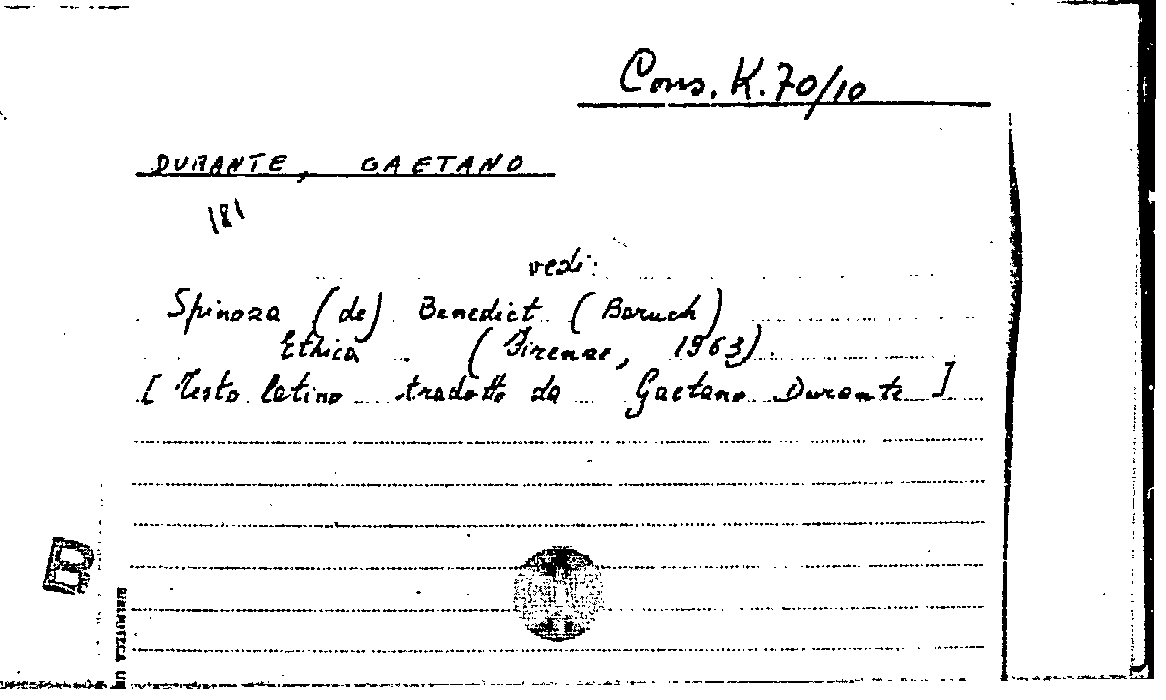 Cons. K.70/10
DURANTE, GAETANO
181
vedi:
Spinoza (de) Benedict (Baruch)
Ethica (Firenze, 1963).
[Testo latino tradotto da Gaetano Durante]
B
BIBLIOTECA